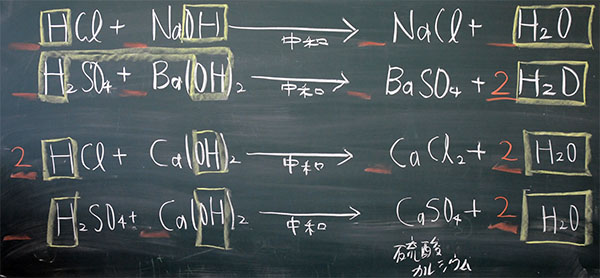 HCl + NaOH 中和→ NaCl + H₂O
H₂SO₄ + Ba(OH)₂ 中和→ BaSO₄ + 2 H₂O
2 HCl + Ca(OH)₂ 中和→ CaCl₂ + 2 H₂O
H₂SO₄ + Ca(OH)₂ 中和→ CaSO₄ + 2 H₂O
硫酸
カルシウム